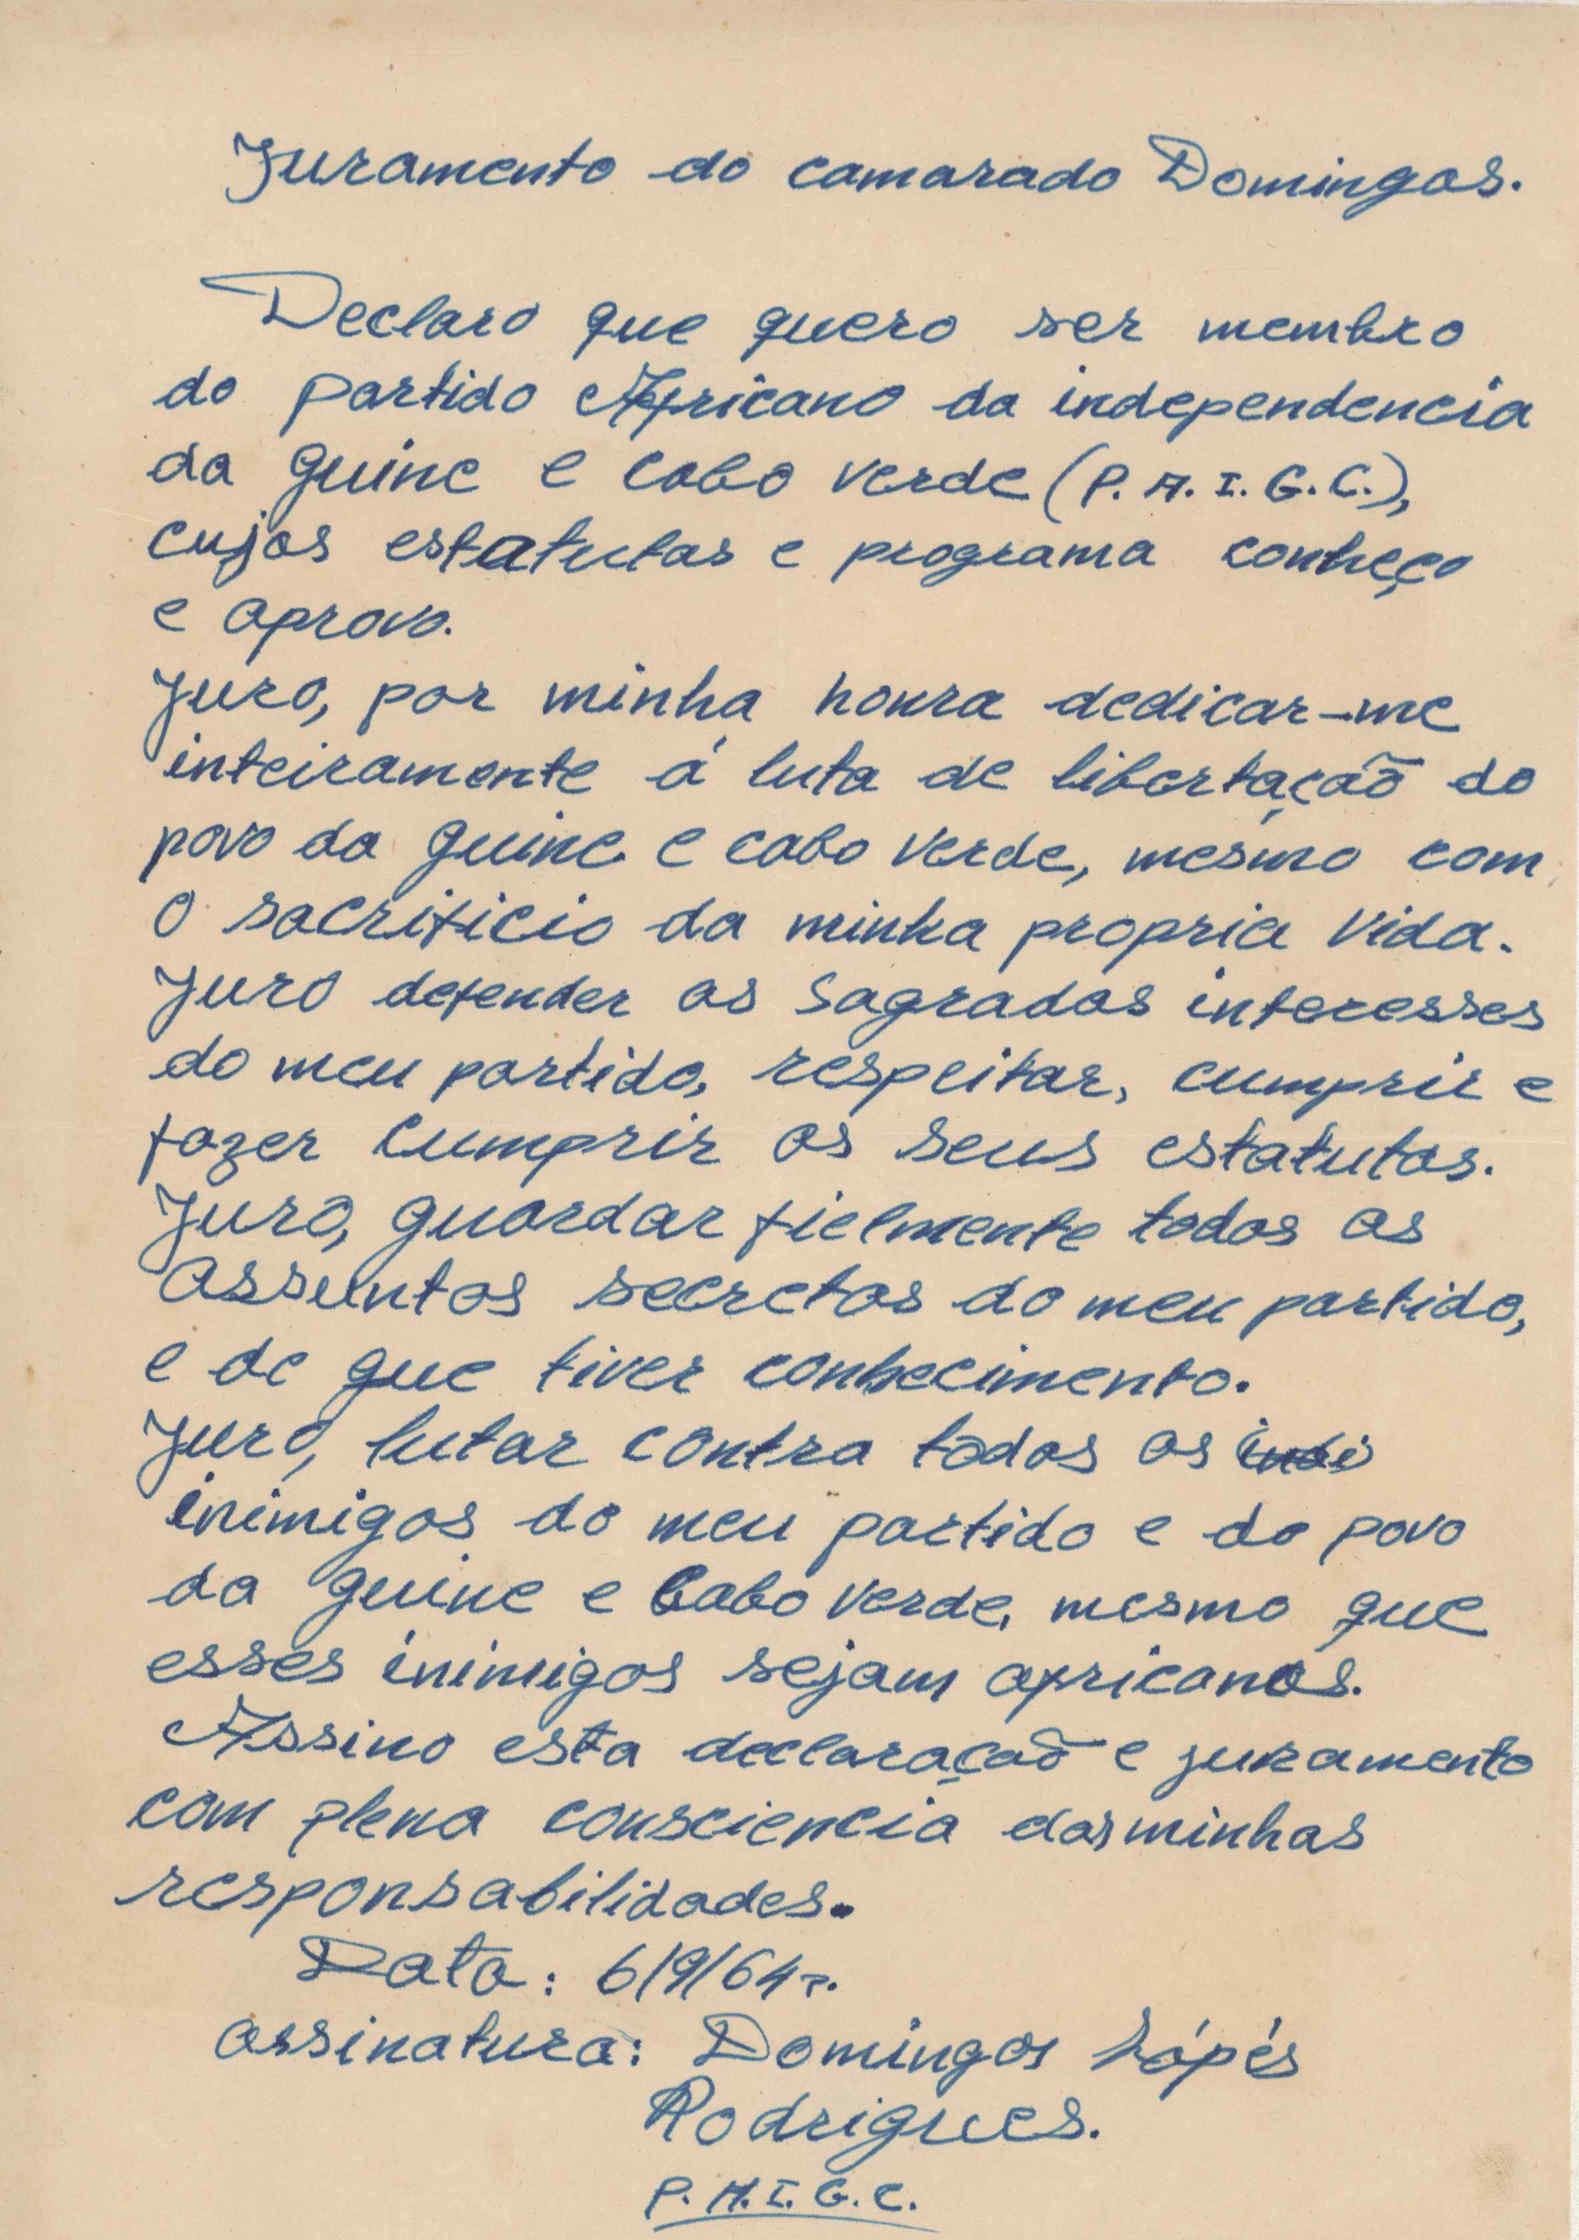 Juramento do camarado Domingos.
Declaro que quero ser membro
do partido Africano da independencia
da guine e cabo verde (P. A. I. G. C.),
cujos estatutos e programa conheço
e aprovo.
Juro, por minha honra dedicar-me
inteiramente á luta de libertação do
povo da guine e cabo verde, mesmo com
o sacrificio da minha propria vida.
Juro defender os sagrados interesses
do meu partido, respeitar, cumprir e
fazer cumprir os seus estatutos.
Juro, guardar fielmente todos os
assuntos secretos do meu partido,
e de que tiver conhecimento.
Juro, lutar contra todos os
inimigos do meu partido e do povo
da guine e Cabo verde, mesmo que
esses inimigos sejam africanos.
Assino esta declaração e juramento
com plena consciencia das minhas
responsabilidades.
Data: 6/9/64 r.
assinatura: Domingos Lópés
Rodrigues.
P. A. I. G. C.